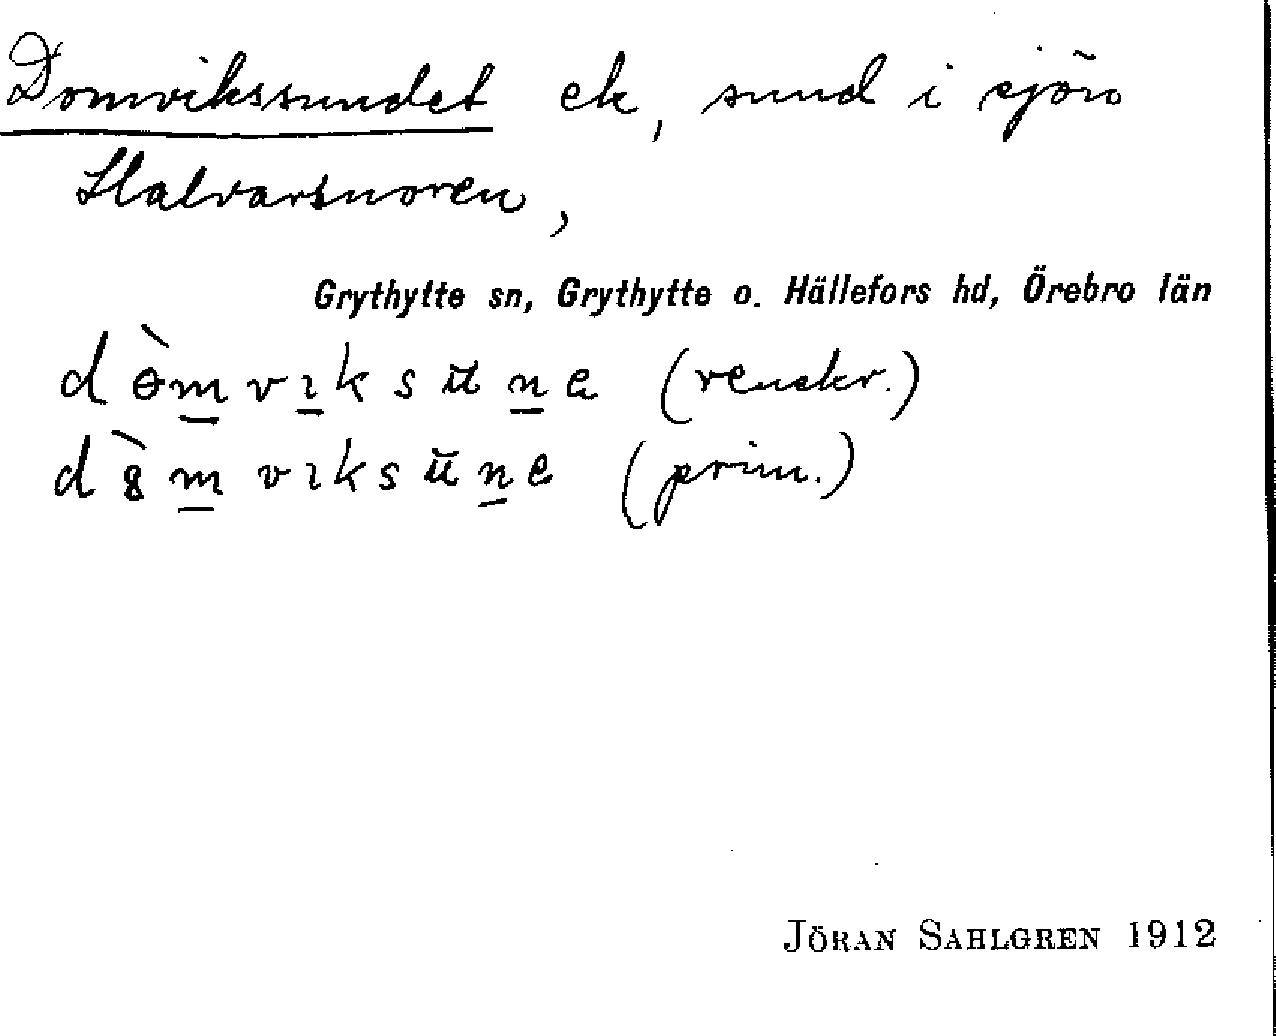 Domvikssundet ek, sund i sjön
Halvarsnoren,
Grythytte sn, Grythytte o. Hällefors hd, Örebro län
dɵ̀m̲vı̲ksŭn̲e (renskr.)
d8̀m̲vıksŭn̲e (prim.)
JÖRAN SAHLGREN 1912